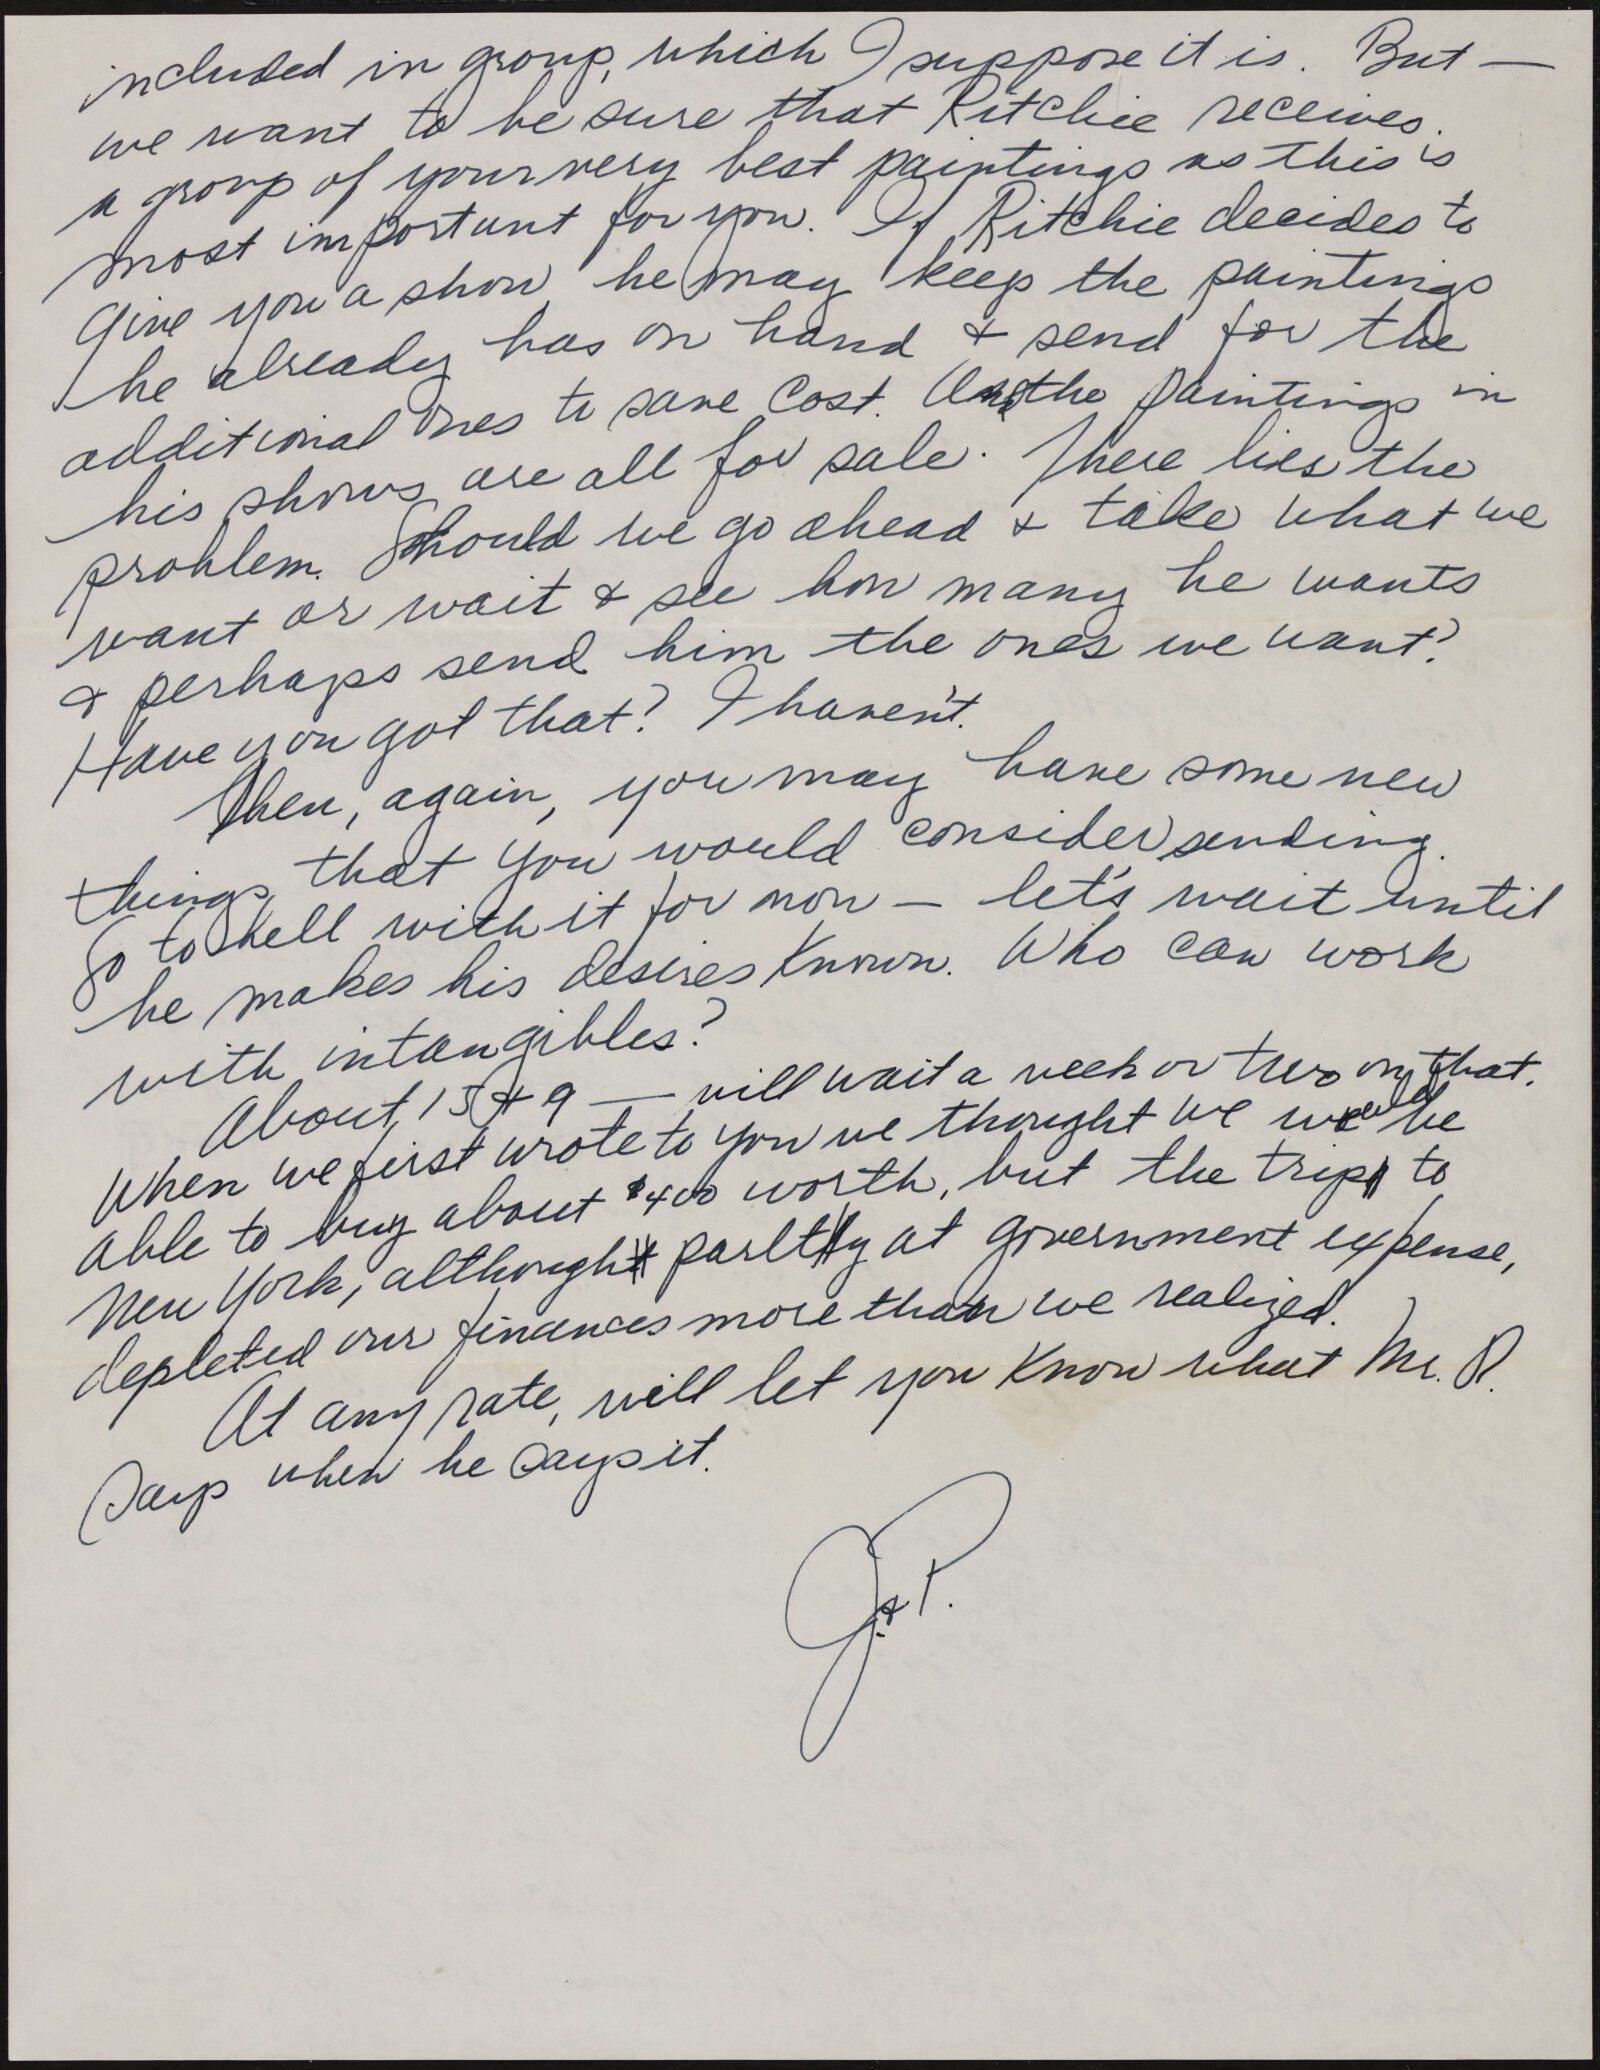 included in group, which I suppose it is. But —
we want to be sure that Ritchie receives
a group of your very best paintings as this is
most important for you. If Ritchie decides to
give you a show he may keep the paintings
he already has on hand & send for the
additional ones to save cost. And the paintings in
his shows are all for sale. There lies the
problem. Should we go ahead & take what we
want or wait & see how many he wants
& perhaps send him the ones we want?
Have you got that? I haven't.
Then, again, you may have some new
things that you would consider sending.
So to hell with it for now — let's wait until
he makes his desires known. Who can work
with intangibles?
About 15 & 9 — will wait a week or two on that.
When we first wrote to you we thought we would be
able to buy about $400 worth, but the trip to
New York, although partly at government expense,
depleted our finances more than we realized.
At any rate, will let you know what Mr. R.
says when he says it.
J. & P.